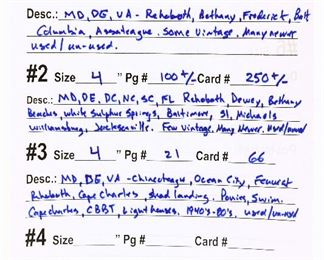 Desc.: MD, DE, VA - Rehoboth, Bethany, Frederick, Balt
Columbia, Assateague. Some Vintage. Many newer
used/un-used.
#2 Size 4 " Pg # 100+/- Card # 250+/-
Desc.: MD, DE, DC, NC, SC, FL Rehoboth, Dewey, Bethany
Beaches, White Sulphur Springs, Baltimore, St. Michaels
Williamsburg, Jacksonville. Few Vintage. Many Newer. Used/unused
#3 Size 4 " Pg # 21 Card # 66
Desc.: MD, DE, VA - Chincoteague, Ocean City, Fenwick
Rhoboth, Cape Charles, Shad landing. Ponies, Swim.
Cape charles, CBBT, Lighthouses. 1940's-80's. used/un-used
#4 Size " Pg # Card #